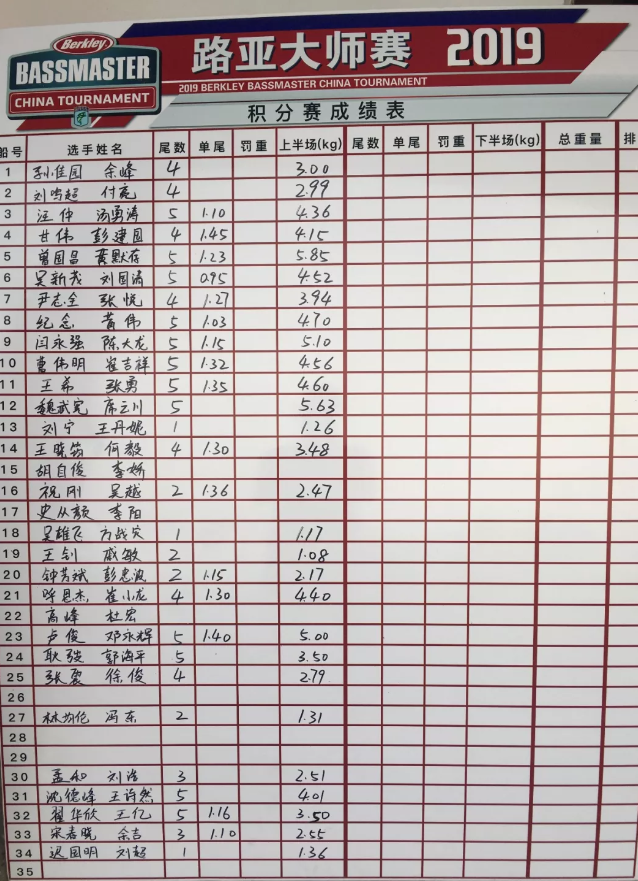 Berkley
BASSMASTER
CHINA TOURNAMENT
路亚大师赛 2019
2019 BERKLEY BASSMASTER CHINA TOURNAMENT
积分赛成绩表
船号 选手姓名 尾数 单尾 罚重 上半场(kg) 尾数 单尾 罚重 下半场(kg) 总重量 排
1 孙佳园 余峰 4 3.00
2 刘鸣超 付亮 4 2.99
3 汪仲 汤勇涛 5 1.10 4.36
4 甘伟 彭建国 4 1.45 4.15
5 曾国昌 黄默存 5 1.23 5.85
6 吴新茂 刘国涛 5 0.95 4.52
7 尹志全 张悦 4 1.27 3.94
8 纪念 黄伟 5 1.03 4.70
9 闫永强 陈大龙 5 1.15 5.10
10 曹伟明 崔吉祥 5 1.32 4.56
11 王希 张勇 5 1.35 4.60
12 魏武宪 席云川 5 5.63
13 刘宁 王丹妮 1 1.26
14 王晓筠 何毅 4 1.30 3.48
15 胡自俊 李娇
16 祝刚 吴越 2 1.36 2.47
17 史从颜 李阳
18 吴雄飞 方战灾 1 1.17
19 王钊 戚敏 2 1.08
20 钟芳斌 彭忠波 2 1.15 2.17
21 呼思杰 崔小龙 4 1.30 4.40
22 高峰 杜宏
23 卢俊 邓永辉 5 1.40 5.00
24 耿弢 郭海平 5 3.50
25 张震 徐俊 4 2.79
26
27 林均伦 冯东 2 1.31
28
29
30 孟和 刘浩 3 2.51
31 沈德峰 王许然 5 4.01
32 翟华欣 王亿 5 1.16 3.50
33 宋春晓 余吉 3 1.10 2.55
34 迟国明 刘超 1 1.36
35